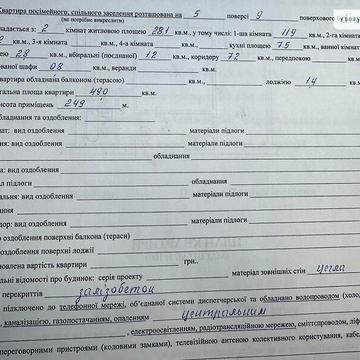 Квартира посімейного, спільного заселення розташована на 5 поверсі 9 поверхового
(не потрібне викреслити)
ладається з: 2 кімнат житловою площею 281 кв.м., у тому числі: 1-ша кімната 119 кв.м., 2-га кімната
кв.м., 3-я кімната кв.м., 4-а кімната кв.м., кухні площею 7.5 кв.м., ванної кімнати
ею 28 кв.м., вбиральні (поєднаної) 12 кв.м., коридору 72 кв.м., передпокою кв.м.
ованої шафи 08 кв.м., веранди кв.м.
Квартира обладнана балконом (терасою) кв.м., лоджією 14 кв.м.
гальна площа квартири 490 кв.м.
исота приміщень 249 м.
бладнання та оздоблення:
нат: вид оздоблення матеріали підлоги
ня: вид оздоблення матеріали підлоги
обладнання
а: вид оздоблення
л підлоги обладнання
альня: вид оздоблення матеріали підлоги
ання
дор: вид оздоблення матеріали підлоги
оздоблення поверхні балкона (тераси)
оздоблення поверхні лоджії
новлена вартість квартири грн..
альні відомості про будинок: серія проекту матеріал зовнішніх стін цегла
перекриттів залізобетон
підключено до телефонної мережі, об'єднаної системи диспетчерської та обладнано водопроводом (холо
, каналізацією, газопостачанням, опаленням центральним
, електроосвітленням, радіотрансляційною мережею, сміттєпроводом, ліф
переговорними пристроями (кодовими замками), телевізійною антеною колективного користування, кабе